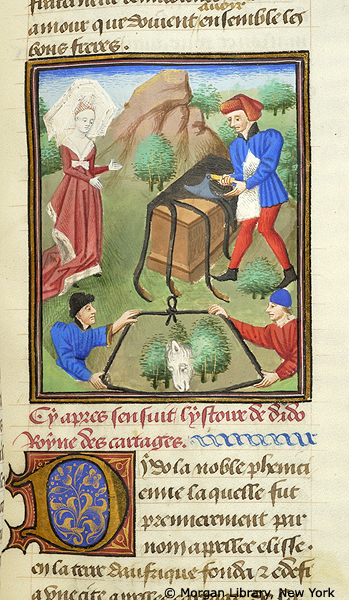 avoir
amour que doivent ensemble les
bons freres.
Cy apres sensuit lystoire de dido
Royne des cartages.
Dydo la noble pheniti
enne laquelle fut
premierement par
nom appellee elisse.
en la terre daufrique fonda & edefi
© Morgan Library, New York